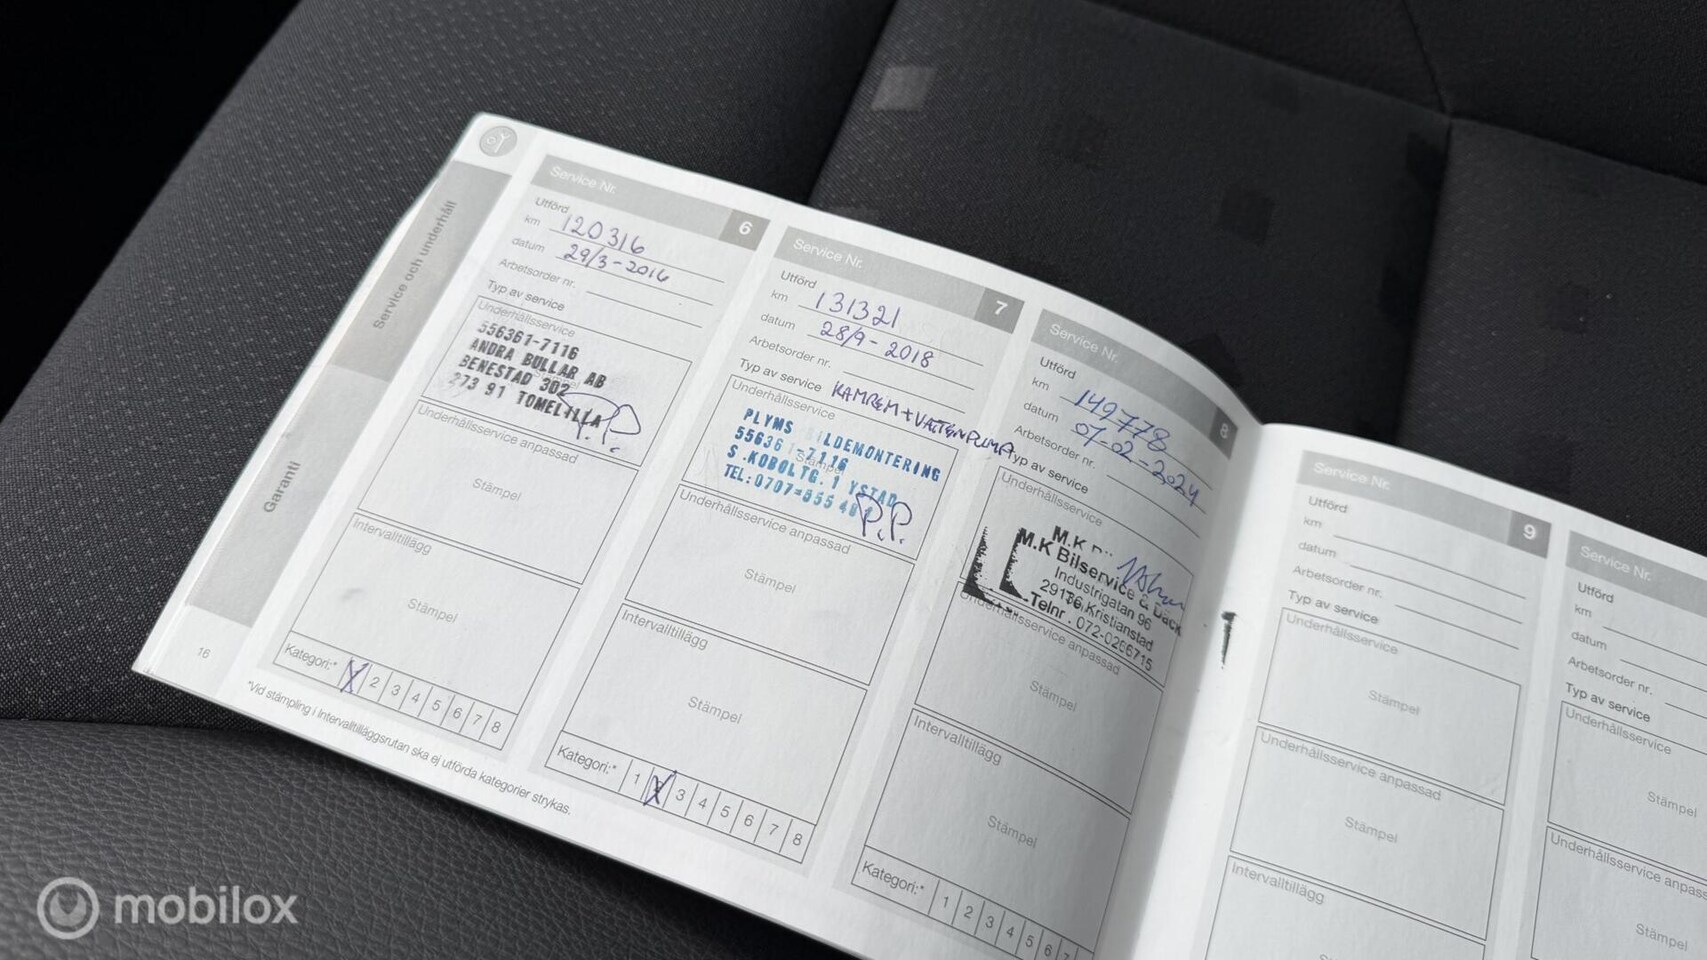 Service och underhåll
Garanti
16
Service Nr.
6
Utförd
km 120316
datum 29/3-2016
Arbetsorder nr.
Typ av service
Underhållsservice
556361-7116
ANDRA BULLAR AB
BENESTAD 302
273 91 TOMELILLA
P.P.
Underhållsservice anpassad
Stämpel
Intervalltillägg
Stämpel
Kategori:* 1 2 3 4 5 6 7 8
*Vid stämpling i Intervalltilläggsrutan ska ej utförda kategorier strykas.
Service Nr.
7
Utförd
km 131321
datum 28/9-2018
Arbetsorder nr.
Typ av service KAMREM + VATTENPUMP
Underhållsservice
Stämpel
PLYMS BILDEMONTERING
556361-7116
S.KOBOLTG. 1 YSTAD
TEL:0707=855
P.P.
Underhållsservice anpassad
Stämpel
Intervalltillägg
Stämpel
Kategori:* 1 2 3 4 5 6 7 8
Service Nr.
8
Utförd
km 149778
datum 07-02-2024
Arbetsorder nr.
Typ av service
Underhållsservice
M.K
M.K Bilservice & Däck
Industrigatan 96
29136 Kristianstad
Telnr. 072-0266715
Underhållsservice anpassad
Stämpel
Intervalltillägg
Stämpel
Kategori:* 1 2 3 4 5 6 7
Service Nr.
9
Utförd
km
datum
Arbetsorder nr.
Typ av service
Underhållsservice
Stämpel
Underhållsservice anpassad
Stämpel
Intervalltillägg
Service Nr.
Utförd
km
datum
Arbetsorder nr.
Typ av service
Underhållsservice
Stämpel
Underhållsservice anpass
Stämpel
mobilox